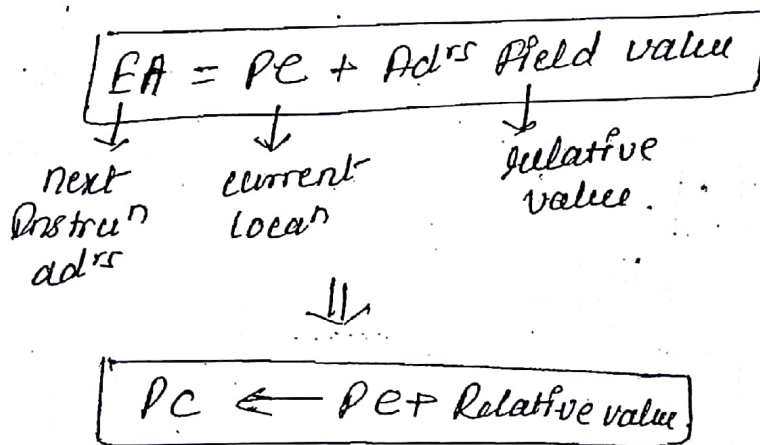 EA = PC + Adrs Field value
next Instrun adrs
current locan
relative value.
PC ← PC + Relative value